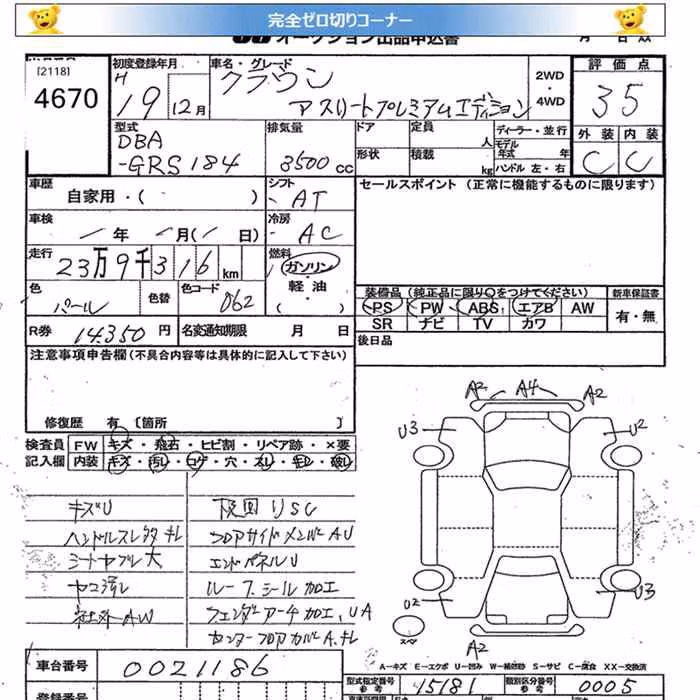 完全ゼロ切りコーナー
オークション出品申込書
[2118]
4670
初度登録年月
H
19 12月
車名・グレード
クラウン
アスリートプレミアムエディション
2WD
・
4WD
評価点
3.5
外装 内装
C C
型式
DBA
-GRS184
排気量
3500 CC
ドア
形状
定員 人
積載 kg
ディーラー・並行
モデル
年式 年
ハンドル 左・右
車歴
自家用・( )
シフト
AT
セールスポイント (正常に機能するものに限ります)
車検
年 月( 日)
冷房
AC
走行
23万9千316 km
燃料
ガソリン
・
軽油
・
( )
色
パール
色替
色コード
062
装備品 (純正品に限り○をつけてください)
PS PW ABS エアB AW
SR ナビ TV カワ
新車保証書
有・無
R券 14,350 円
名変通知期限 月 日
後日品
注意事項申告欄 (不具合内容等は具体的に記入して下さい)
修復歴 有 〔箇所 〕
検査員
記入欄
FW キズ・飛石・ヒビ割・リペア跡・×要
内装 キズ・汚れ・コゲ・穴・スレ・キレ・破レ
キズU
ハンドルスレ多 キレ
シートヤブレ大
ヤコゲレ
社外AW
コアサイドメンバーAU
エンドパネルU
ルーフシール加工
フェンダーアーチ加工、UA
センターフロアカバーA、キレ
A2 A4 A2
U3 U2
U2 U3
A2
スペア
A-キズ E-エクボ U-凹み W-補修跡 S-サビ C-腐食 XX-交換済
車台番号 0021186
型式指定番号
参考 15181
類別区分番号
参考 0005
登録番号